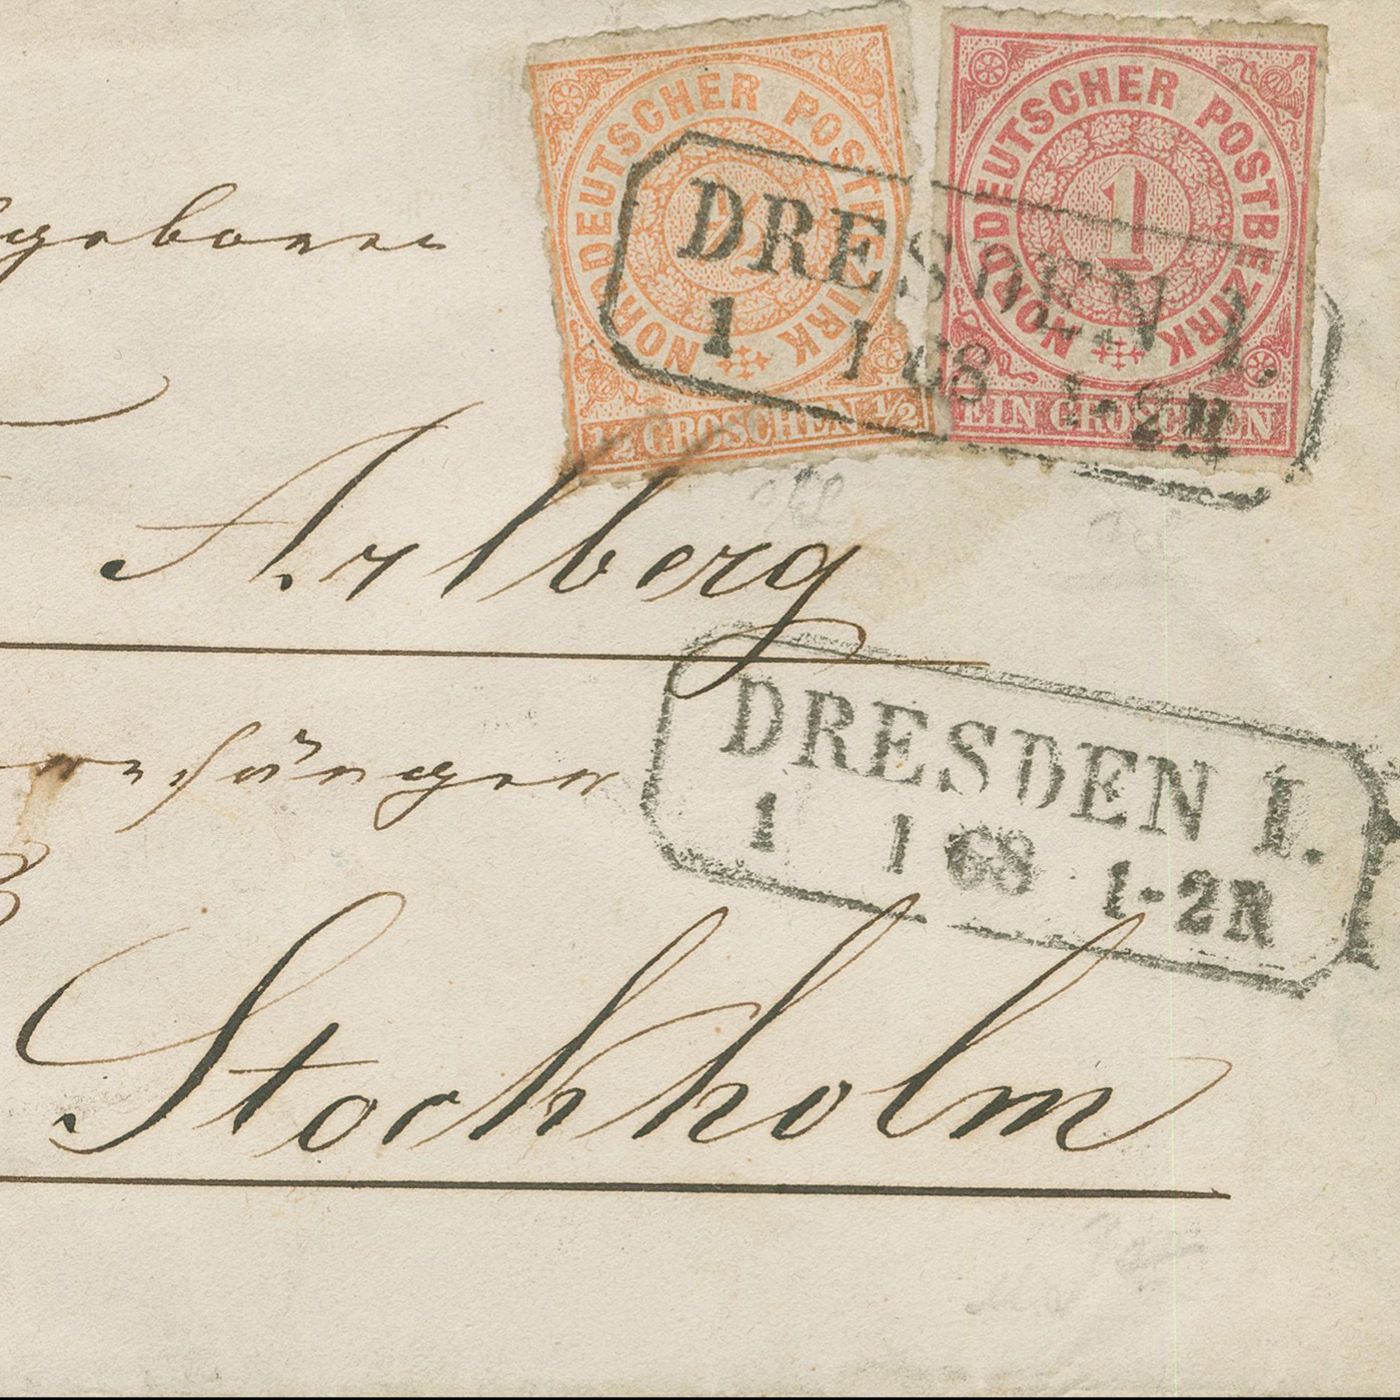 NORDDEUTSCHER POSTBEZIRK
½
½ GROSCHEN ½
NORDDEUTSCHER POSTBEZIRK
1
EIN GROSCHEN
DRESDEN I.
1 1 68 1-2N
Arlberg
DRESDEN I.
1 1 68 1-2N
Stockholm